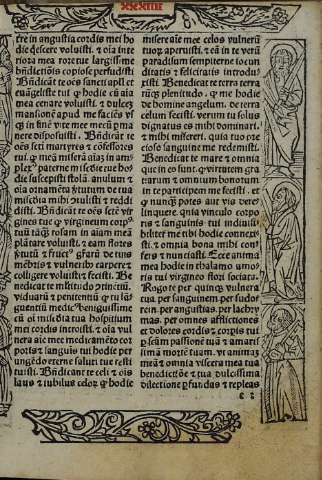 xxxiiii
tre in angustia cordis mei ho
die descere voluisti. ⁊ oīa inte
riora mea rore tue largissime
bn̄dictiōis copiose perfudisti
Bn̄dicāt te oēs sancti apl̄i et
euāgeliste tui ꝙ hodie cū aīa
mea cenare voluisti. ⁊ dulcez
mansionē apud me faciēs vſ
qꝫ in finē vite mee mecū ꝑma
nere disposuisti. Bn̄dicāt te
oēs scti martyres ⁊ cōfessores
tui. ꝙ meā miserā aīaz in am
plex⁹ paterne mīe tue ho
die suscepisti stolā
oīa ornamēta tutum de tua
misc̄dia mihi ⁊ reddi
disti. Bn̄dicāt te oēs scte vir
gines tue ꝙ virgineum corp⁹
tuū tāqꝫ rosam in aīam meā
plātare voluisti. ⁊ eam flores
tutū ⁊ fruct⁹ gr̄arū de tuis
mēbris ⁊ vulnerib⁹ carpere ⁊
colligere voluisti ⁊ fecisti. Be
nedicat te mltitudo
viduarū ⁊ penitentiū ꝙ tu
guentū medic benignissime
oī misc̄dia tua hospitium
mei cordis introisti. ⁊ oīa vul
nera aīe mee medicamēto cor
poris ⁊ sanguīs tui hodie per
ungēdo eterne saluti tue resti
tuisti. Bn̄dicant te celi ⁊ ois
laus ⁊ iubilus celoꝝ ꝙ hodie
misere aīe mee celos vulnerū
tuoꝝ aperuisti. ⁊ eā in te verū
paradisum sempiterne iocun
ditatis ⁊ felicitatis introdu
xisti. Benedicat te terra terra
rūqꝫ plenitudo. ꝙ me hodie
de homine angelum. de terra
celum fecisti. verum tu solus
dignatus es mihi dominari.
⁊ mihi misereri. quia tuo pre
cioso sanguine me redemisti.
Benedicat te mare ⁊ omnia
que in eo sunt. ꝙ virtutem gra
tiarum ⁊ omnium bonorum
in te participem me fecisti. et
ꝙ nunqꝫ potes aut vis dere
linquere. quia vinculo corpo
ris ⁊ sanguinis tui indiuisi
biliter me tibi hodie coniunx
isti. ⁊ omnia bona mihi con
fers ⁊ nunciasti. Ecce anima
mea hodie in thalamo vmo
ris tui virgineo flori sociata.
Rogo te per quinqꝫ vulnera
tua. per sanguinem. per sudo
rem. per angustias. per lachry
mas. per omnes afflictiones
et dolores cordis ⁊ corpis tui
ꝑ scām passionē tuā ⁊ amaris
simā mortē tuam. vt animaz
meā ⁊ omnia viscera mea tua
benedictōe ⁊ tua dulcissima
dilectione ꝑfundas ⁊ repleas